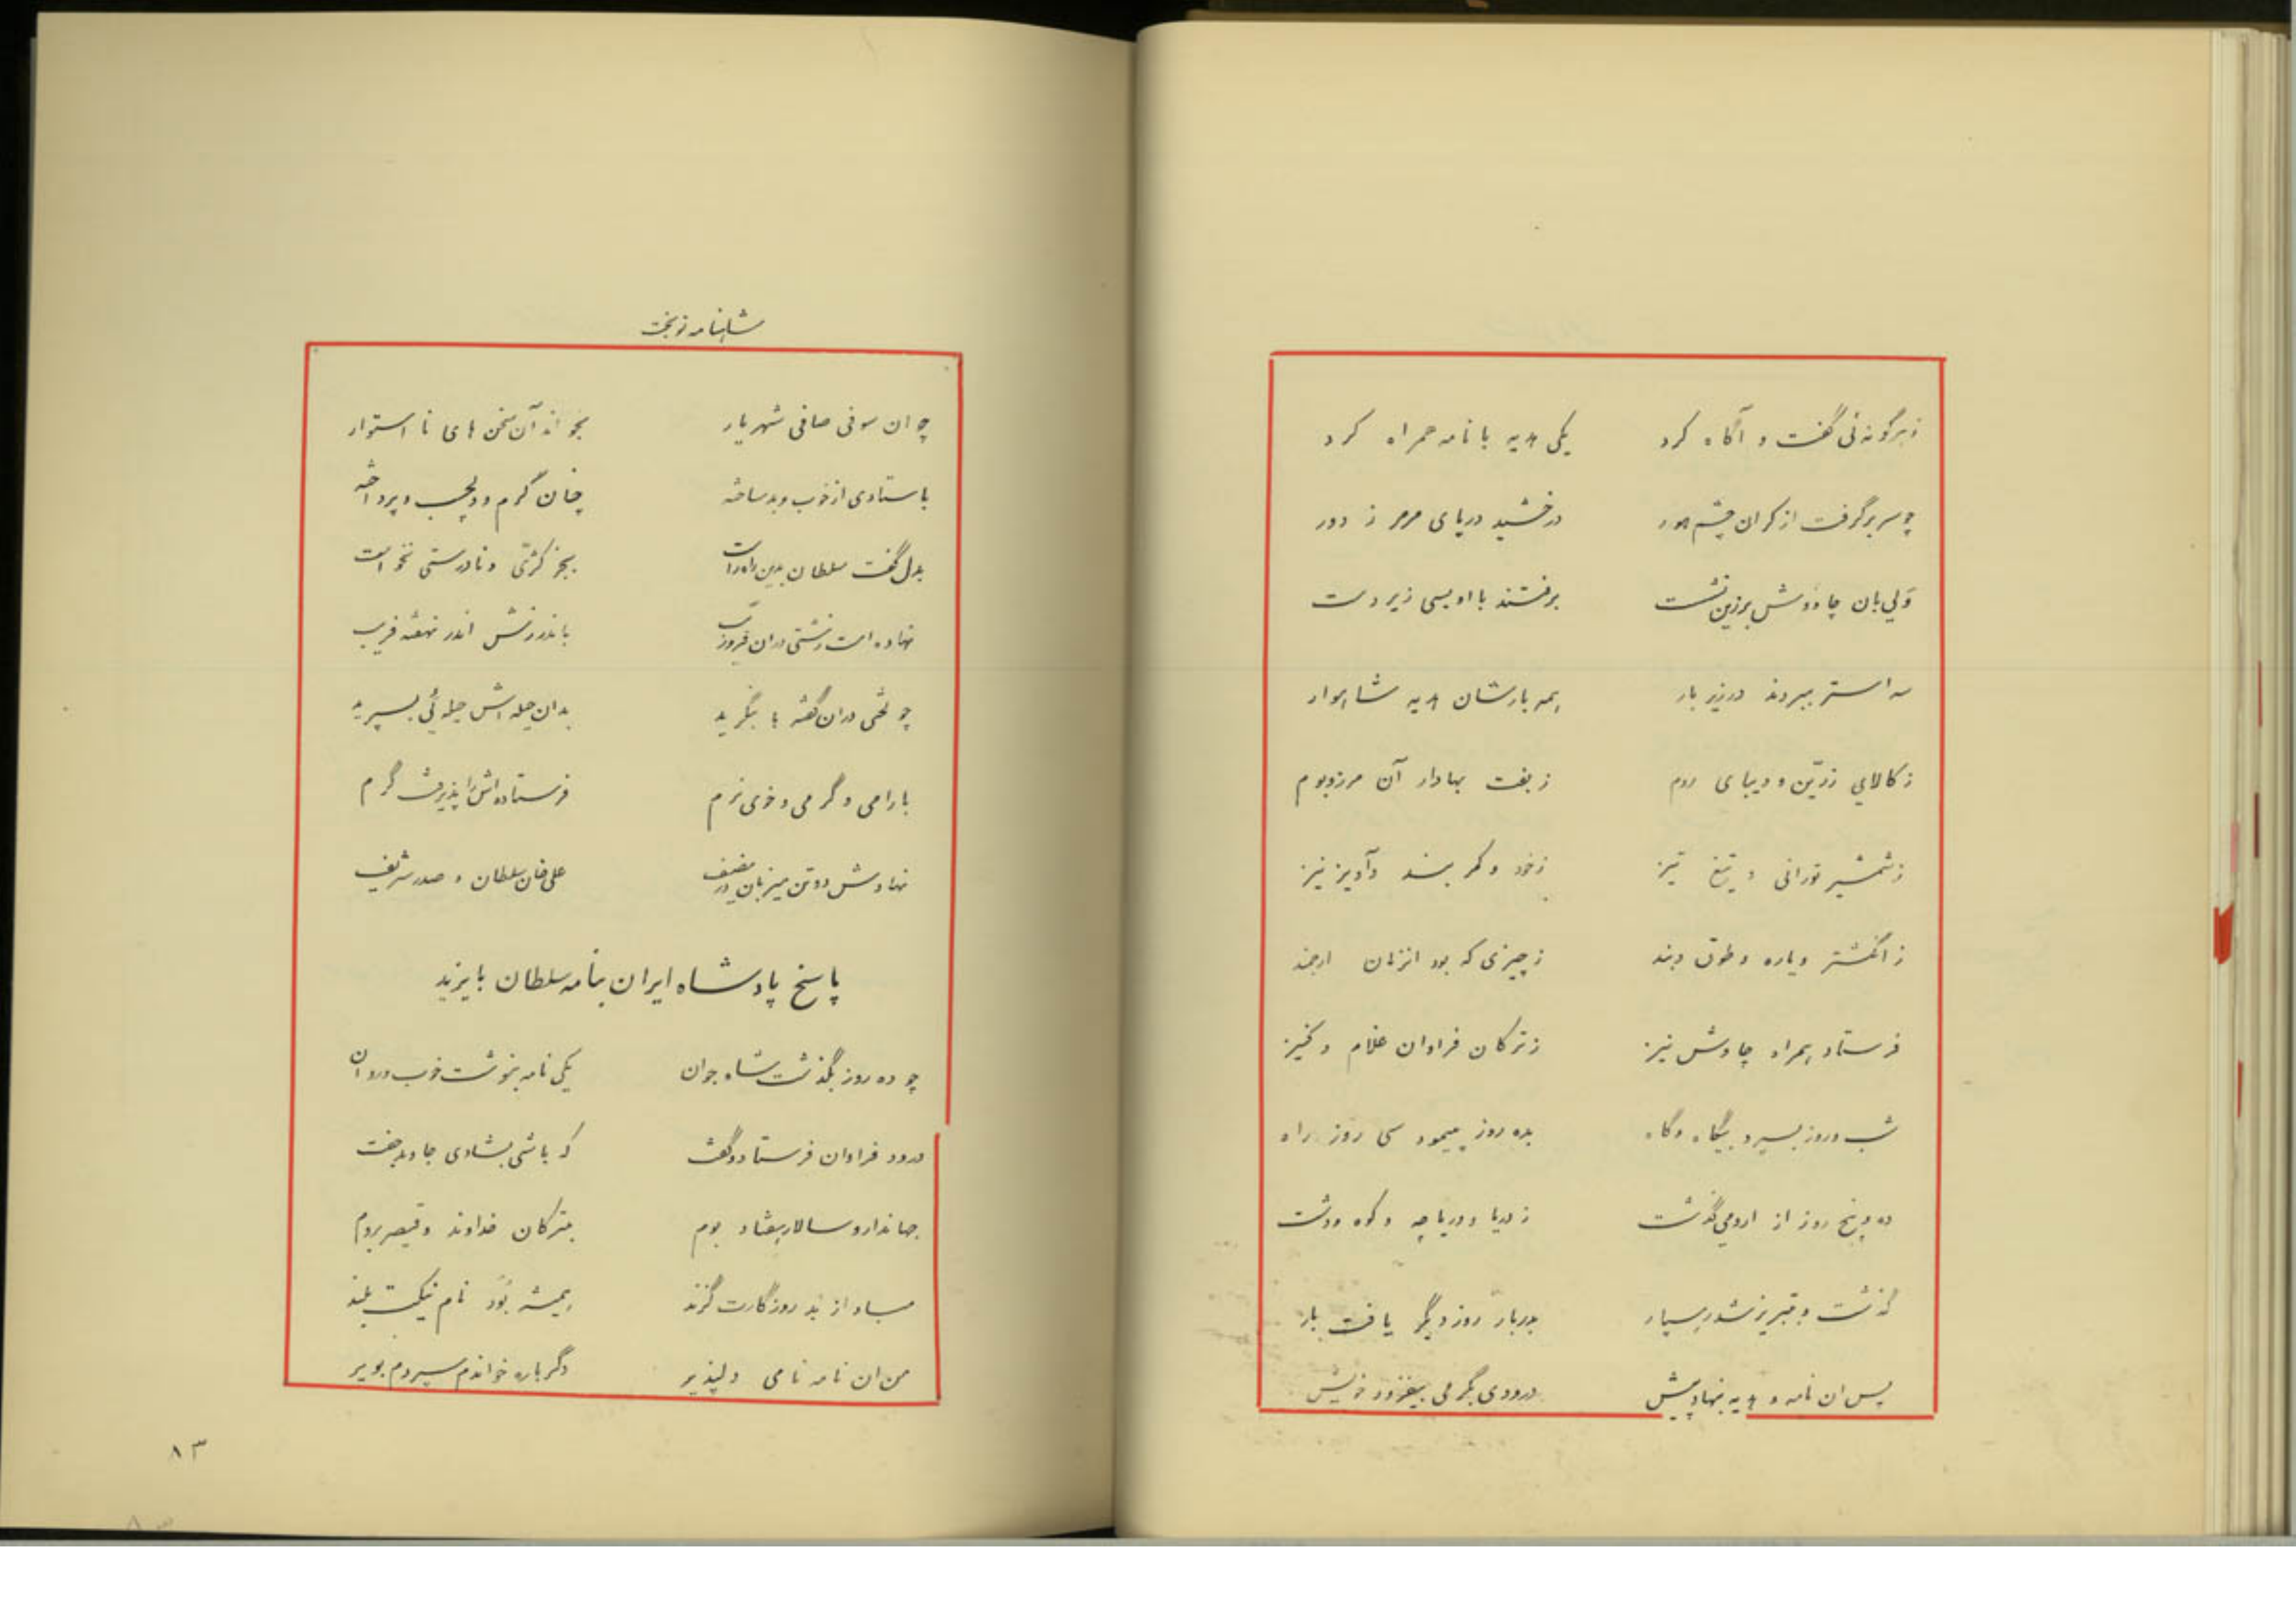 زهرگونه‌ئی گفت و آگاه کرد یکی هدیه با نامه همراه کرد
چو سر برگرفت از کران چشم هور درخشید دریای مرمر ز دور
وَلی بان چاووش بر زین نشست برفتند با او بسی زیر دست
سه استر ببردند در زیر بار همه بارشان هدیه شاهوار
ز کالای زرّین و دیبای روم ز بفت بهادار آن مرزوبوم
ز شمشیر تورانی و تیغ تیز ز خود و کمربند و آویز نیز
ز انگشتر و یاره و طوق و بند ز چیزی که بود اندران ارجمند
فرستاد همراه چاوش نیز ز ترکان فراوان غلام و کنیز
شب و روز بسپرد بیگاه و گاه بده روز پیمود سی روز راه
ده و پنج روز از ارومی گذشت ز دریا و دریاچه و کوه و دشت
گذشت و به تبریز شد رهسپار بدربار روز دیگر یافت بار
پس ان نامه و هدیه بنهاد پیش درودی بگرمی بیفزود خویش
شاهنامه نوبخت
چو ان صوفی صافی شهریار بخواند آن سخن های نا استوار
باستادی از خوب و بد ساخته چنان گرم و دلچسب و پرداخته
بدل گفت سلطان بدین راه راست بجز کژّی و نادرستی نخواست
نهاده است زشتی در ان باندرزش اندر نهفته فریب
چو لختی در ان گفته ها بنگرید بدان حیله اش حیله‌ئی بسپرید
بارامی و گرمی و خوی نرم فرستاده اش را پذیرفت گرم
نهادش دو تن میزبان در مضیف علی خان سلطان و صدر شریف
پاسخ پادشاه ایران بنامه سلطان بایزید
چو ده روز بگذشت شاه جوان یکی نامه بنوشت خوب و روان
درود فراوان فرستاد و گفت که باشی بشادی جاوید جفت
جهاندار و سالار هفتاد بوم بترکان خداوند و قیصر بروم
مباد از بد روزگارت گزند همیشه بُوَد نام نیکت بلند
من ان نامه نامی دلپذیر دگرباره خواندم سپردم بویر
۸۳